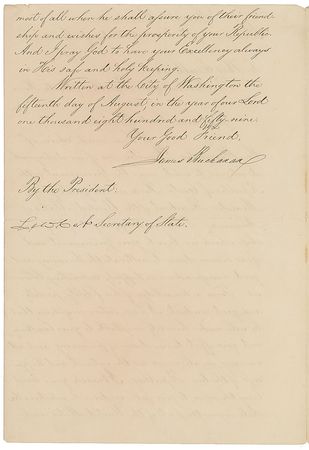 most of all when he shall assure you of their friend-
ship and wishes for the prosperity of your Republic.
And I pray God to have your Excellency always
in His safe and holy keeping.
Written at the City of Washington the
fifteenth day of August, in the year of our Lord
one thousand eight hundred and fifty-nine.
Your Good Friend,
James Buchanan
By the President:
Secretary of State.